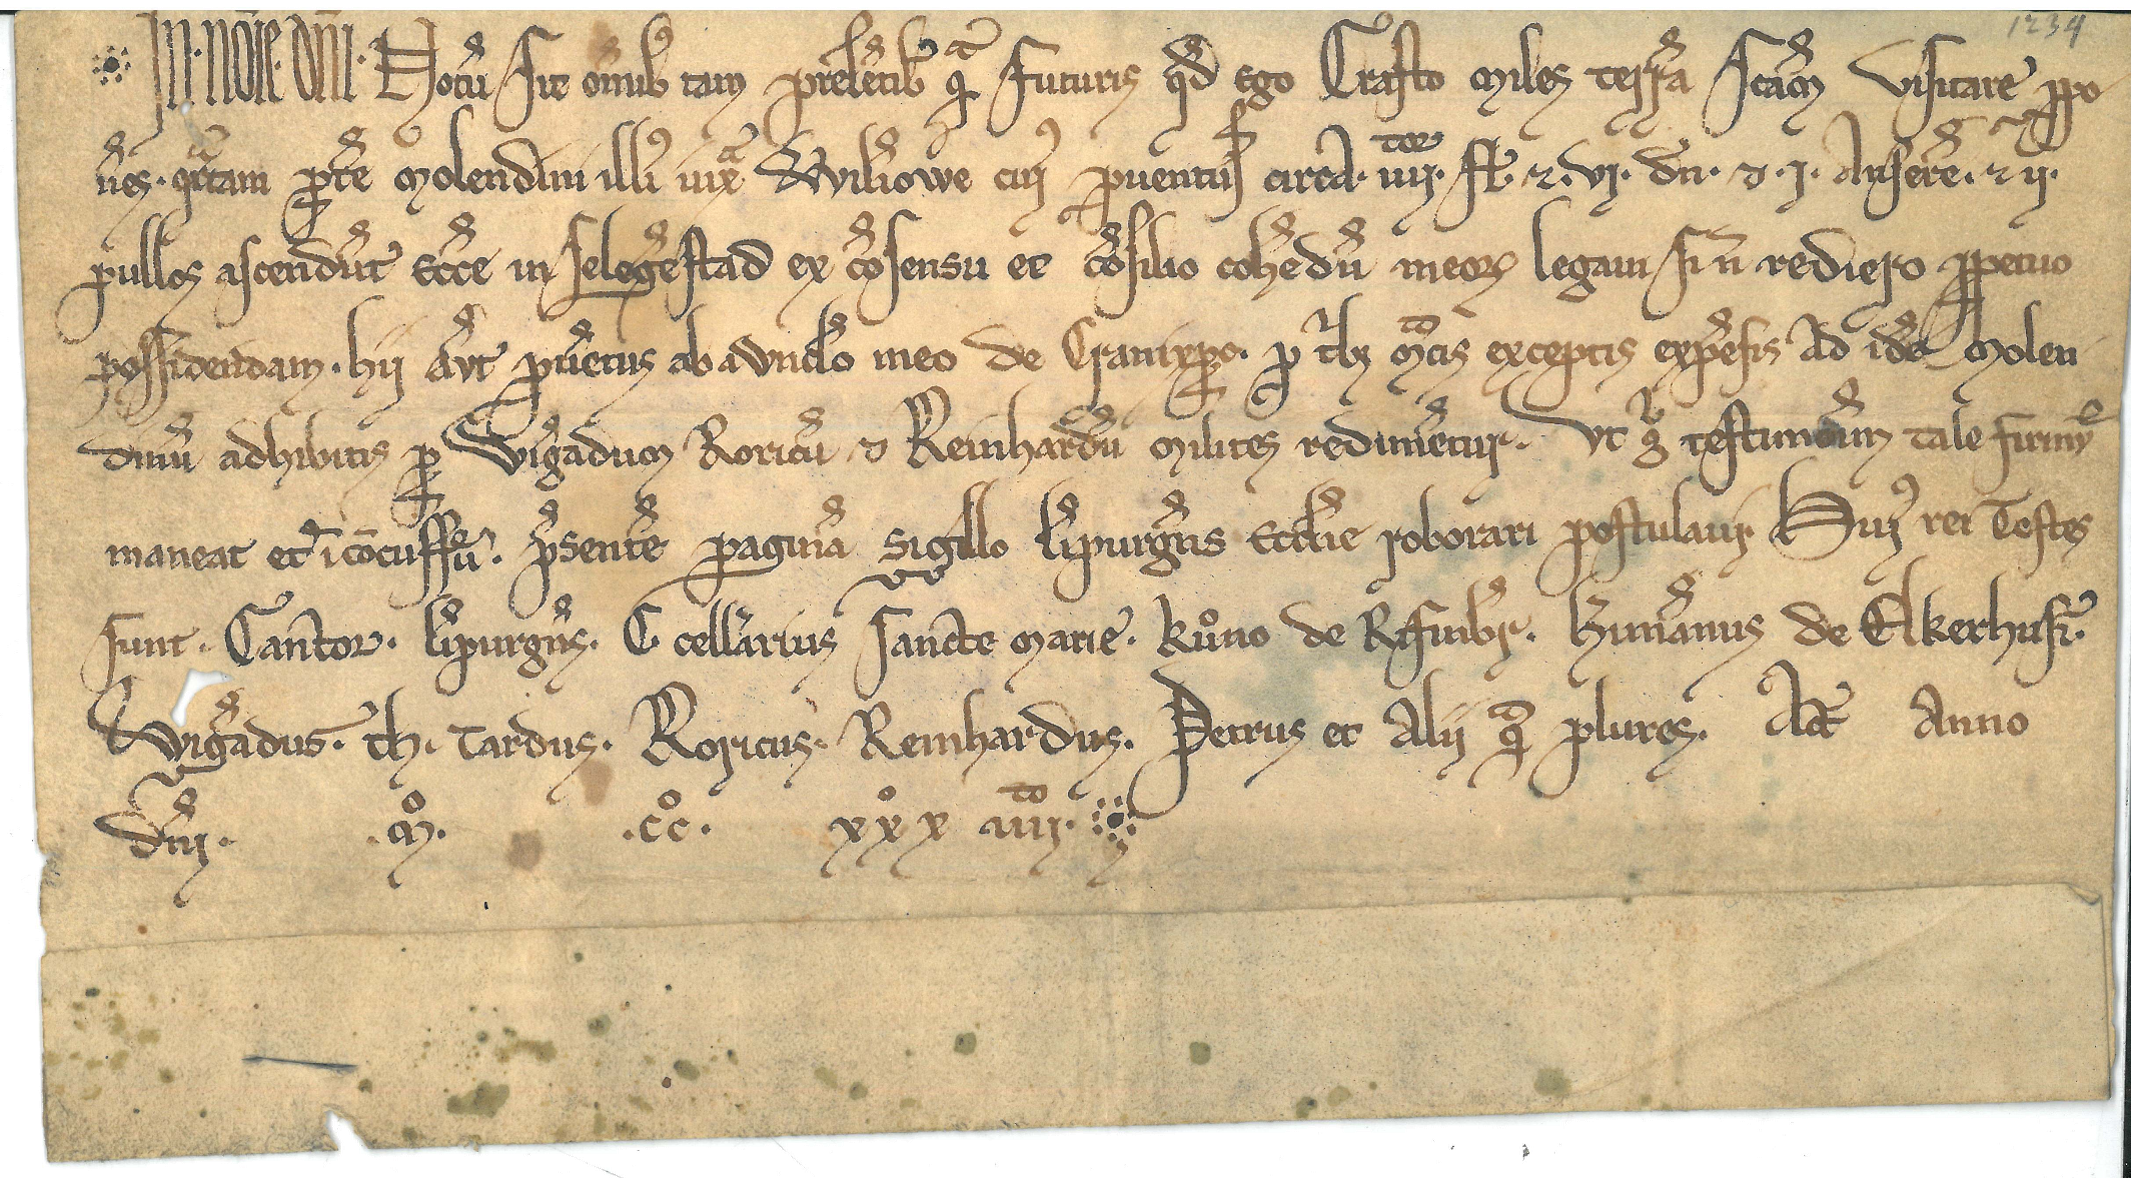 1234
In · noīe · dn̄i · Notū sit om̄ib9 tam presētib9 qͣ futuris qd̄ ego Crafto miles terrā scām visitare ppo
nēs · qͣrtam pͣtē molendini illi9 iuxͣ Wiliowe cui9 puentus circa · iiiior · sł · ⁊ · vi · dn̄ · ⁊ · i · Anserē · ⁊ ii ·
pullos ascendūt Ecc̄e in selegēstad ex cōsensu et cōsilio cohēdū meoꝝ legaui si n̄ rediero ppetuo
possidendam · hii āut puētus ab avūclo meo de Cranixpͣ · p tͥbꝫ mͬcis exceptis expēsis ad idē molen
dinū adhibitis p Wigādum Roricū ⁊ Reinhardū milites redimētur · Ut gͦ testimōium tale firmū
maneat et īcōcussū · p̄sentē paginā sigillo līpurgn̄s Ecclīe roborari postulaui · Hui9 rei Testes
sunt · Cantor · līpurgn̄s · C · cellārius sancte marie · kůno de Rifinbͬg · hīmānus de Elkerhusī ·
Wigādus · th · tardus · Roricus · Reinhardus · Petrus et alii qͣ plures · Act̄ Anno
dn̄i · mͦ · ccͦ · xxͦx iiiito ·